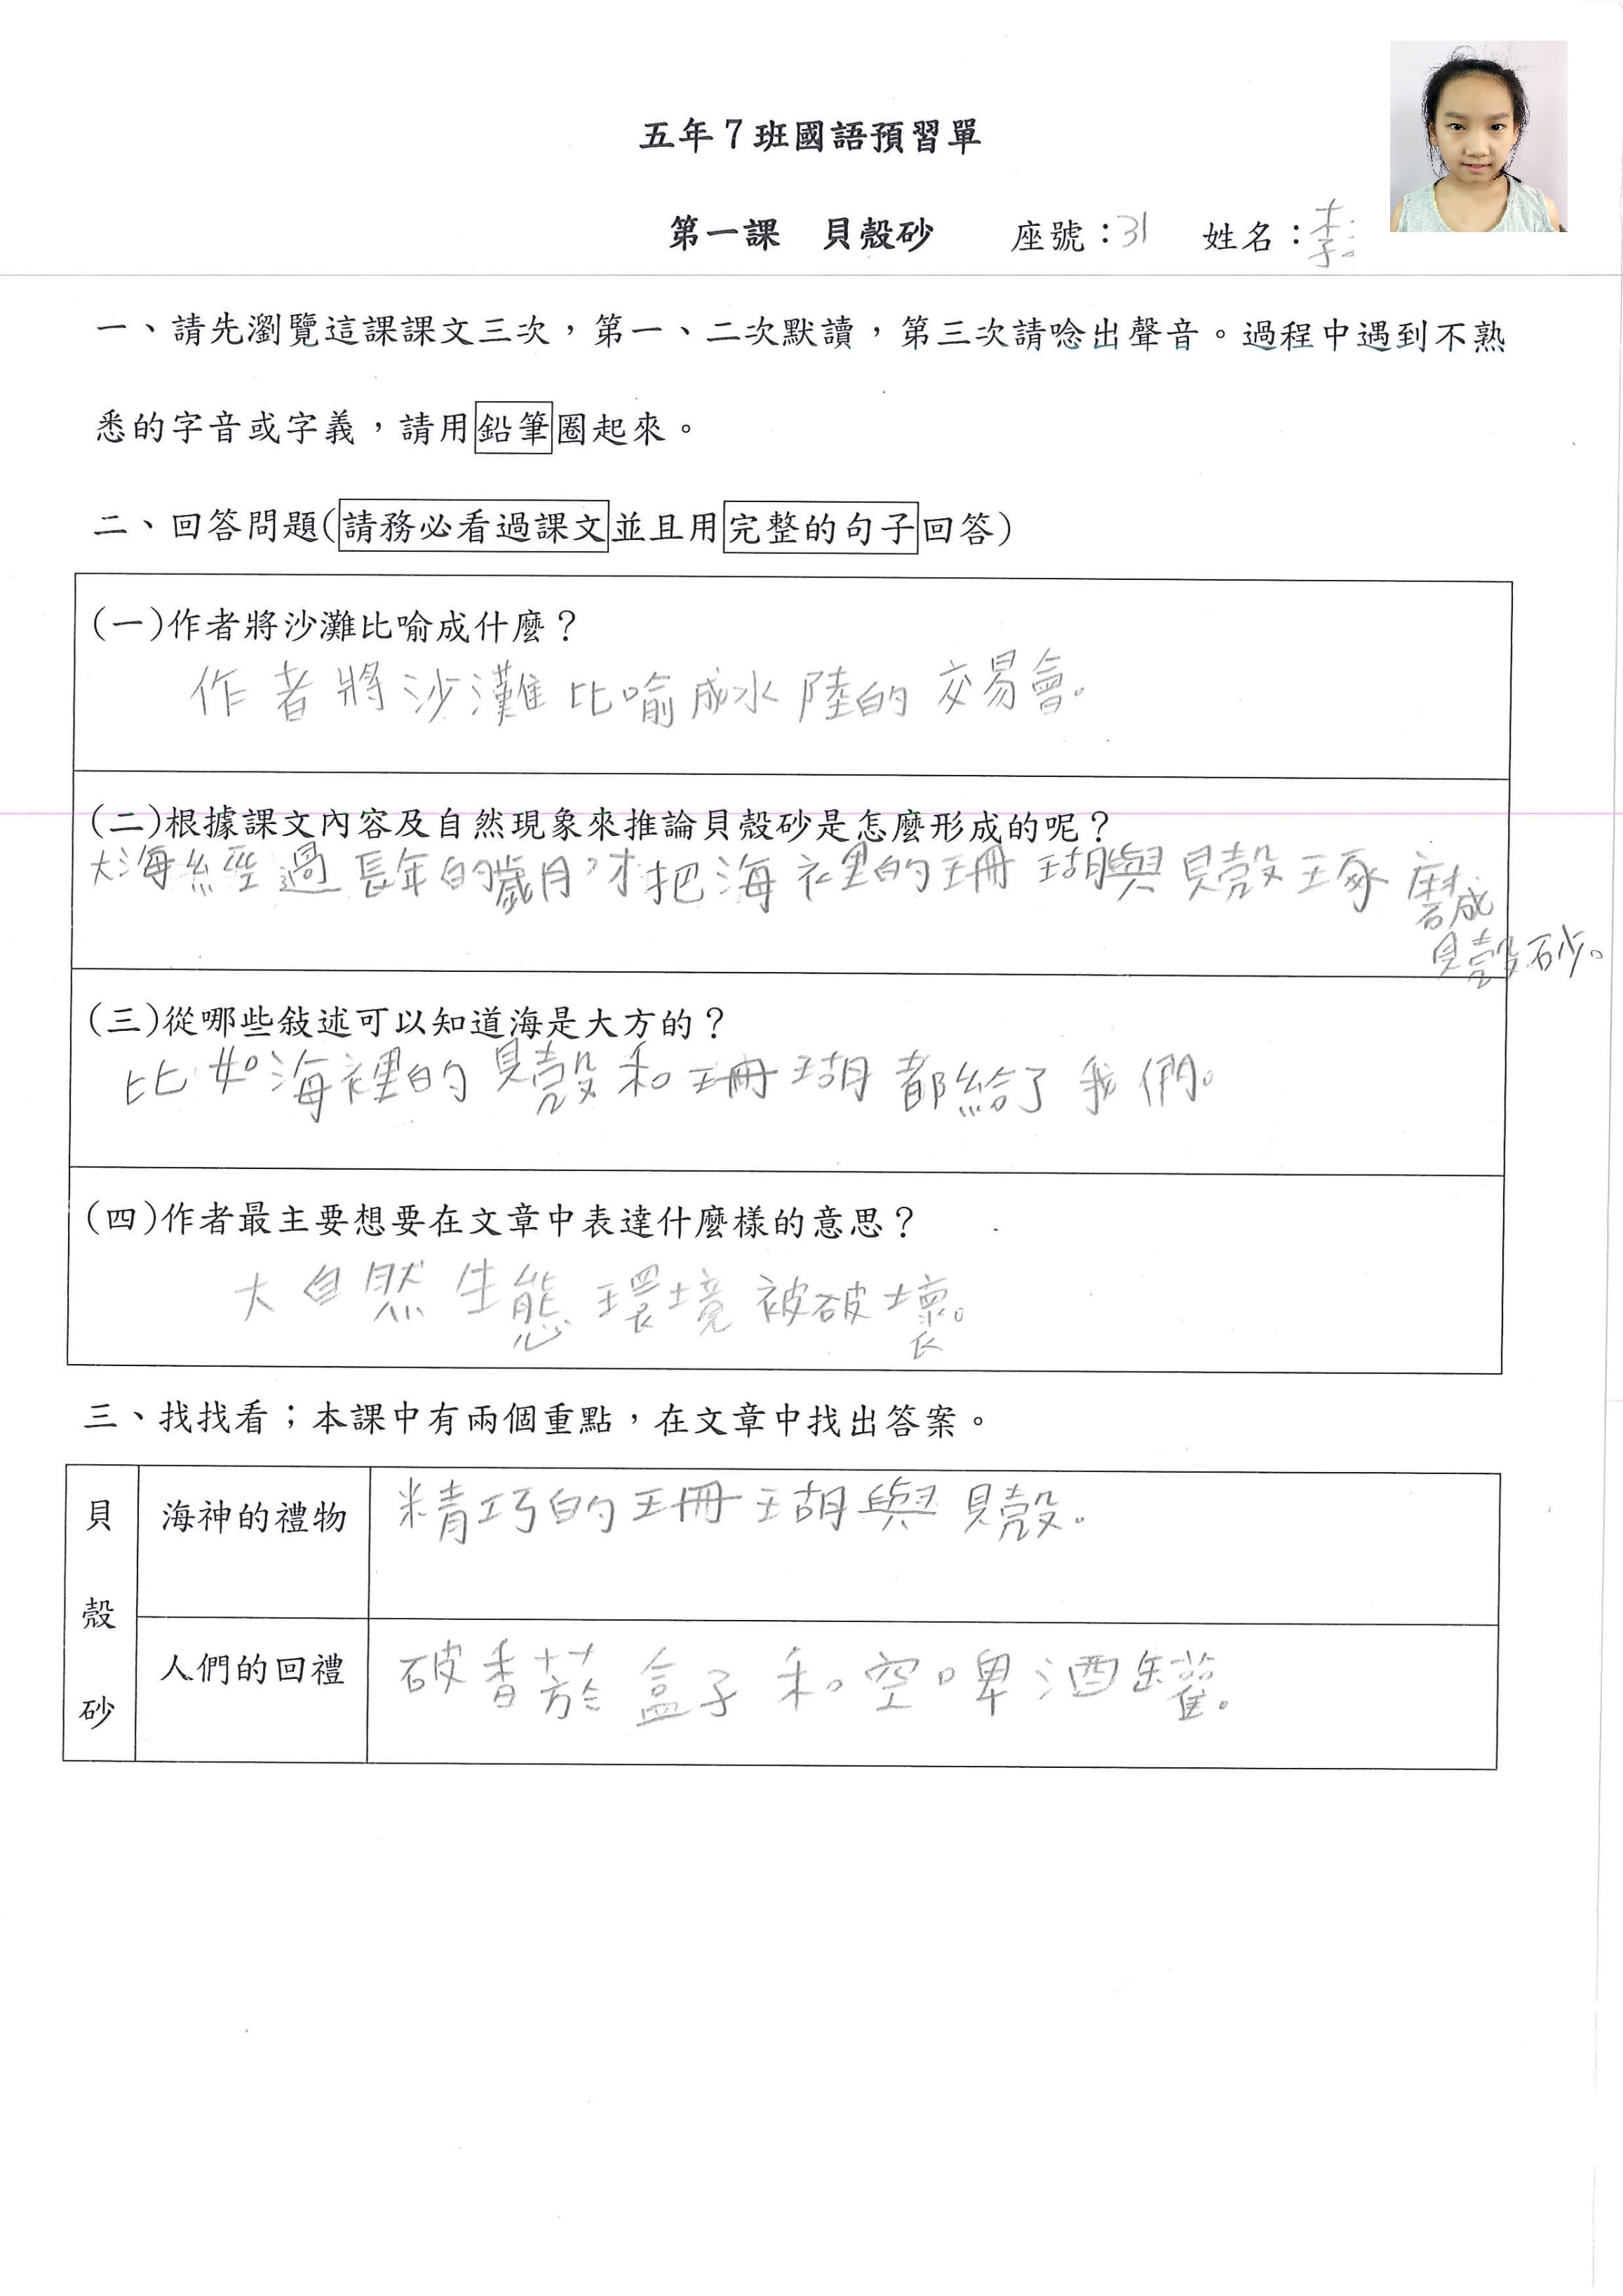 五年7班國語預習單
第一課 貝殼砂 座號：31 姓名：李
一、請先瀏覽這課課文三次，第一、二次默讀，第三次請唸出聲音。過程中遇到不熟
悉的字音或字義，請用鉛筆圈起來。
二、回答問題(請務必看過課文並且用完整的句子回答)
(一)作者將沙灘比喻成什麼？
作者將沙灘比喻成水陸的交易會。
(二)根據課文內容及自然現象來推論貝殼砂是怎麼形成的呢？
大海經過長年的歲月，才把海裡的珊瑚與貝殼琢磨成
貝殼砂。
(三)從哪些敍述可以知道海是大方的？
比如海裡的貝殼和珊瑚都給了我們。
(四)作者最主要想要在文章中表達什麼樣的意思？
大自然生態環境被破壞。
三、找找看；本課中有兩個重點，在文章中找出答案。
貝殼砂
海神的禮物 精巧的珊瑚與貝殼。
人們的回禮 破香菸盒子和空啤酒罐。